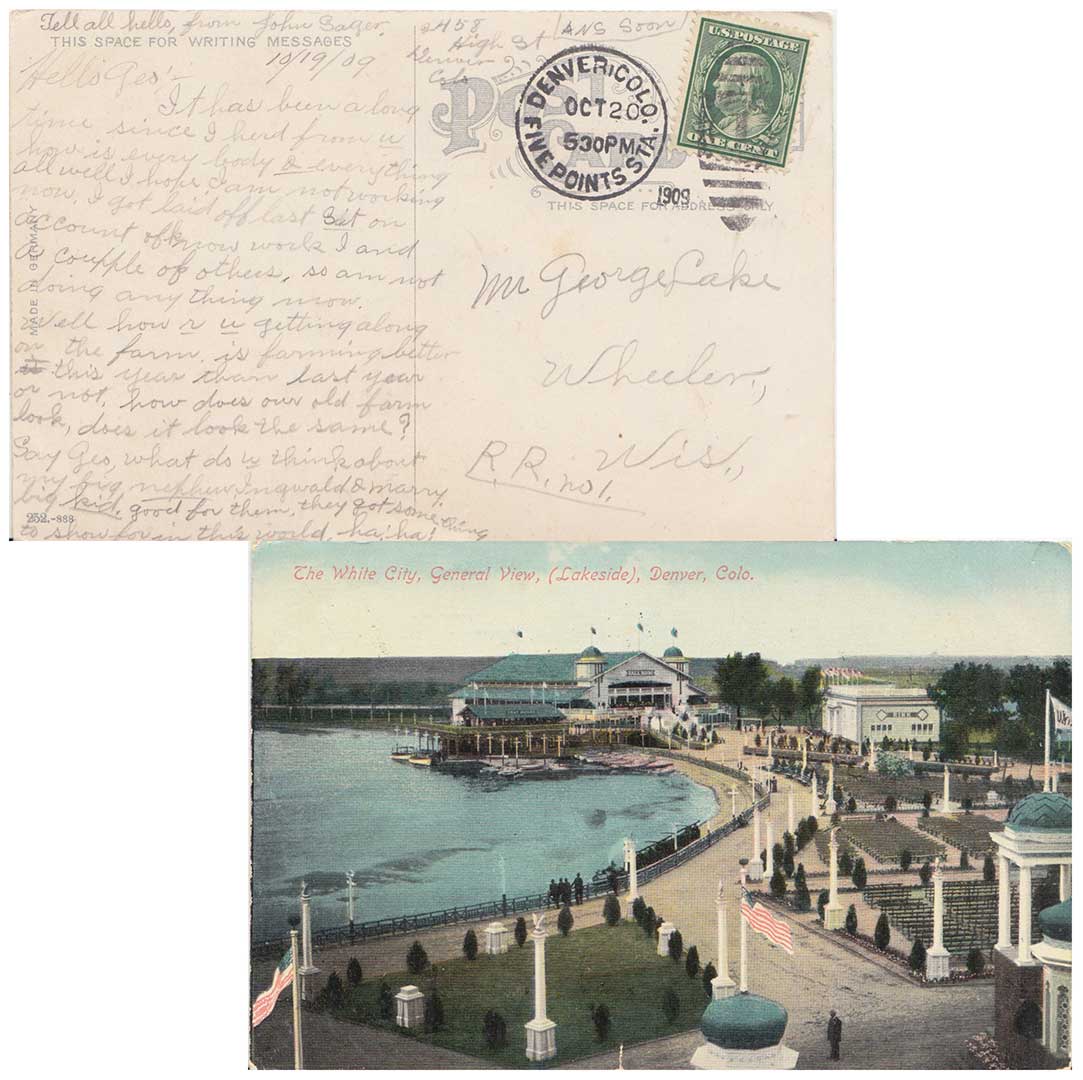 Tell all hello, from John Sager,
THIS SPACE FOR WRITING MESSAGES
10/19/09
Hello Geo:-
It has been a long
time since I herd from u
how is every body & everything
all well I hope I am not working
now, I got laid off last Sat on
account of know work I and
a coupple of others, so am not
doing any thing now.
Well how r u getting along
on the farm is farming better
this year than last year
or not, how does our old farm
look, does it look the same?
Say Geo, what do u think about
my big nephew Ingwald & marry
big kid, good for them, they got something
to show for in this world, ha, ha!
MADE IN GERMANY
252.-888
2458
High St
Denver
Colo
ANS Soon
Post
Card
THIS SPACE FOR ADDRESS ONLY
DENVER, COLO.
OCT 20
530PM
FIVE POINTS STA.
1909
U.S. POSTAGE
ONE CENT
Mr George Lake
Wheeler,
Wis.,
R.R. no 1.
The White City, General View, (Lakeside), Denver, Colo.
BALL ROOM
RINK